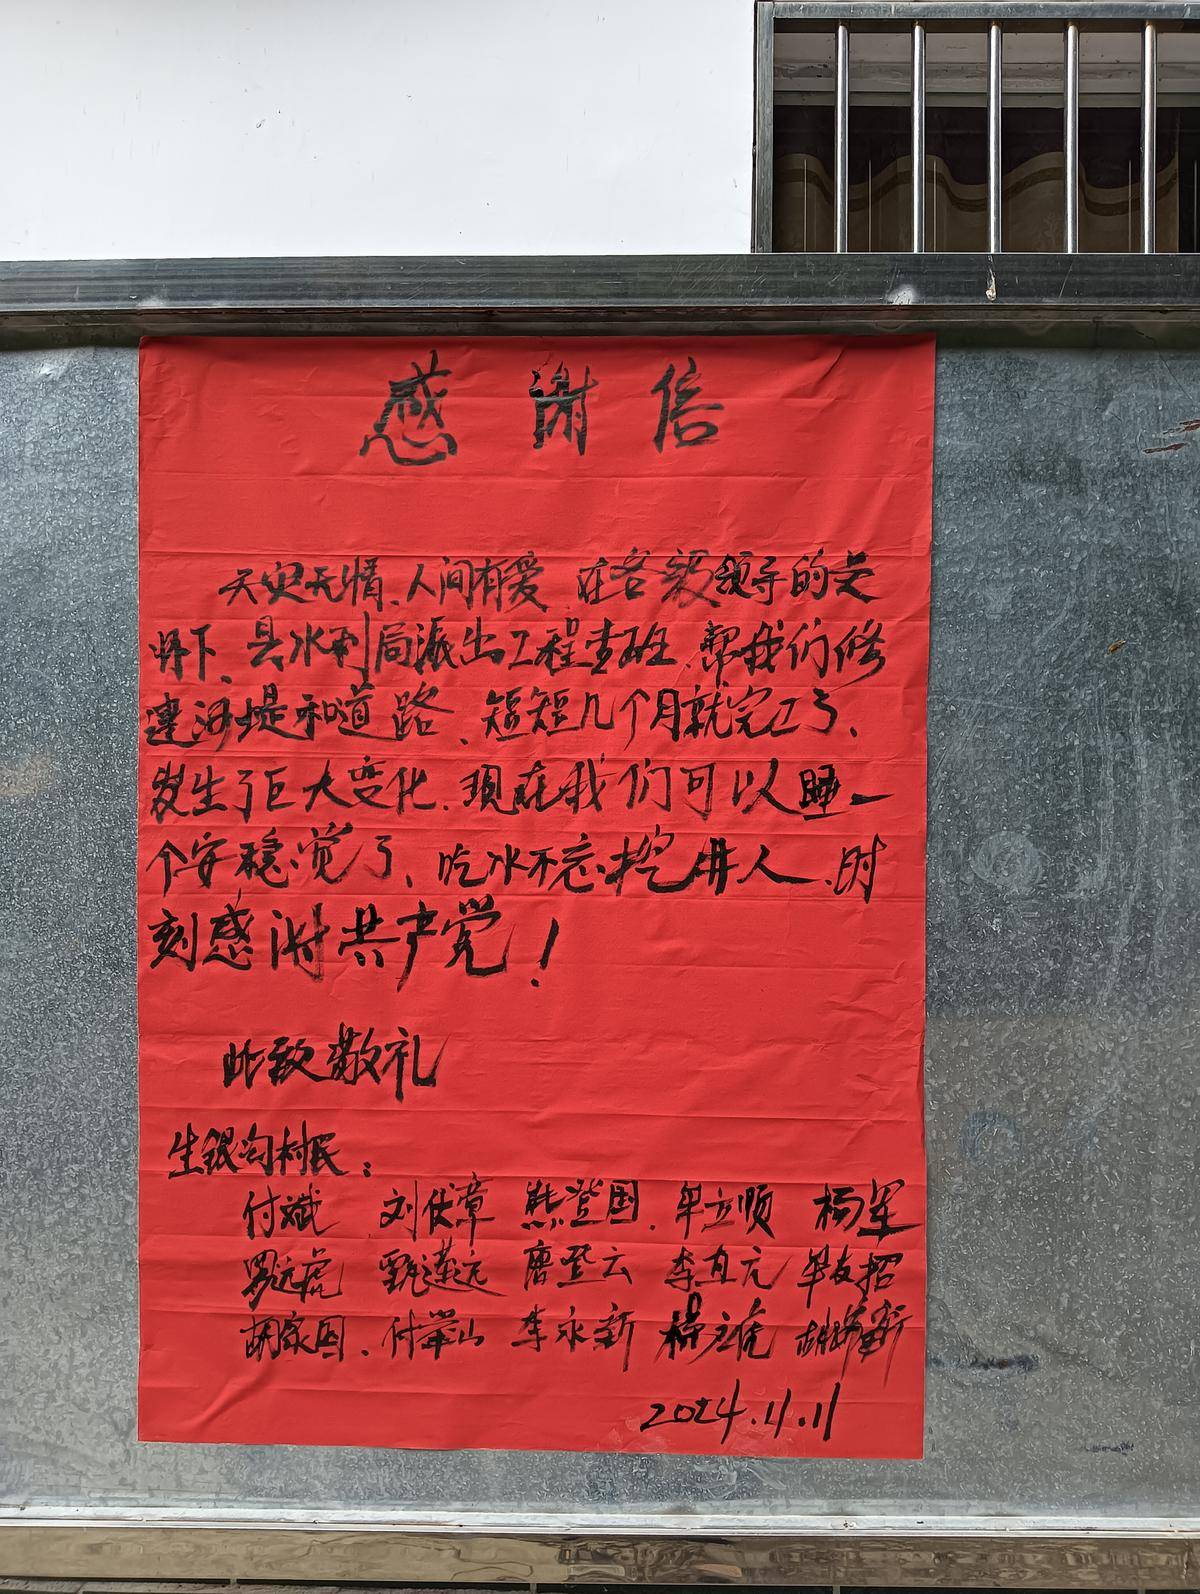 感谢信
天灾无情、人间有爱 在各级领导的关
怀下、县水利局派出工程专班、帮我们修
建河堤和道路、短短几个月就完工了、
发生了巨大变化、现在我们可以睡一
个安稳觉了、吃水不忘挖井人、时
刻感谢共产党！
此致敬礼
生银沟村民：
付斌 刘伏章 熊登国、牟立顺 杨军
罗远虎 甄莲远 唐登云 李直元 牟友招
胡家国、付荣山 李永新 杨
2024.11.11